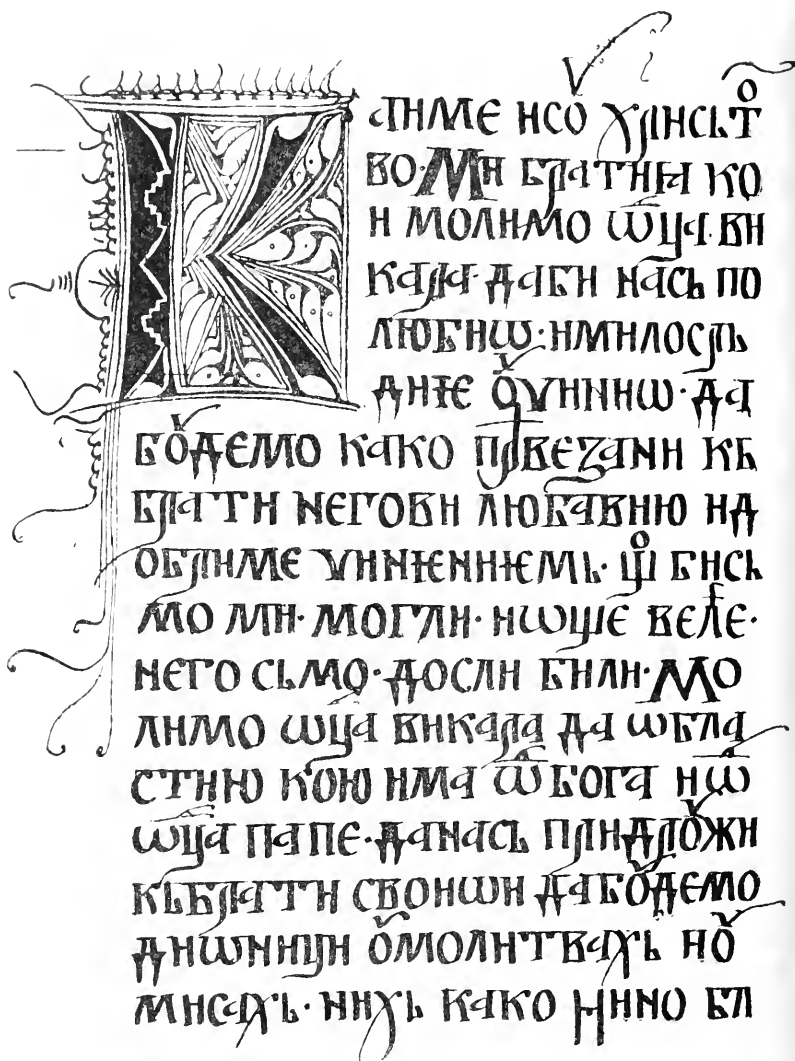 Каиме исꙋ хрисьто
во· Ми братиꙗ ко
и молимо ѡца· ви
кара· даби нась по
любиѡ· имилость
диѥ ꙋчиниѡ· да
бꙋдемо како првезани кь
брати негови любавию ид
обриме чиниѥниѥмь· що бись
мо ми· могли· иѡще веле·
него сьмо· досли били· Мо
лимо ѡца викара да ѡбла
стию кою има ѿ бога иѿ
ѡца папе· данась придрꙋжи
кьбрати своиѡи дабꙋдемо
диѡници ꙋмолитвахь иꙋ
мисахь· нихь како бр